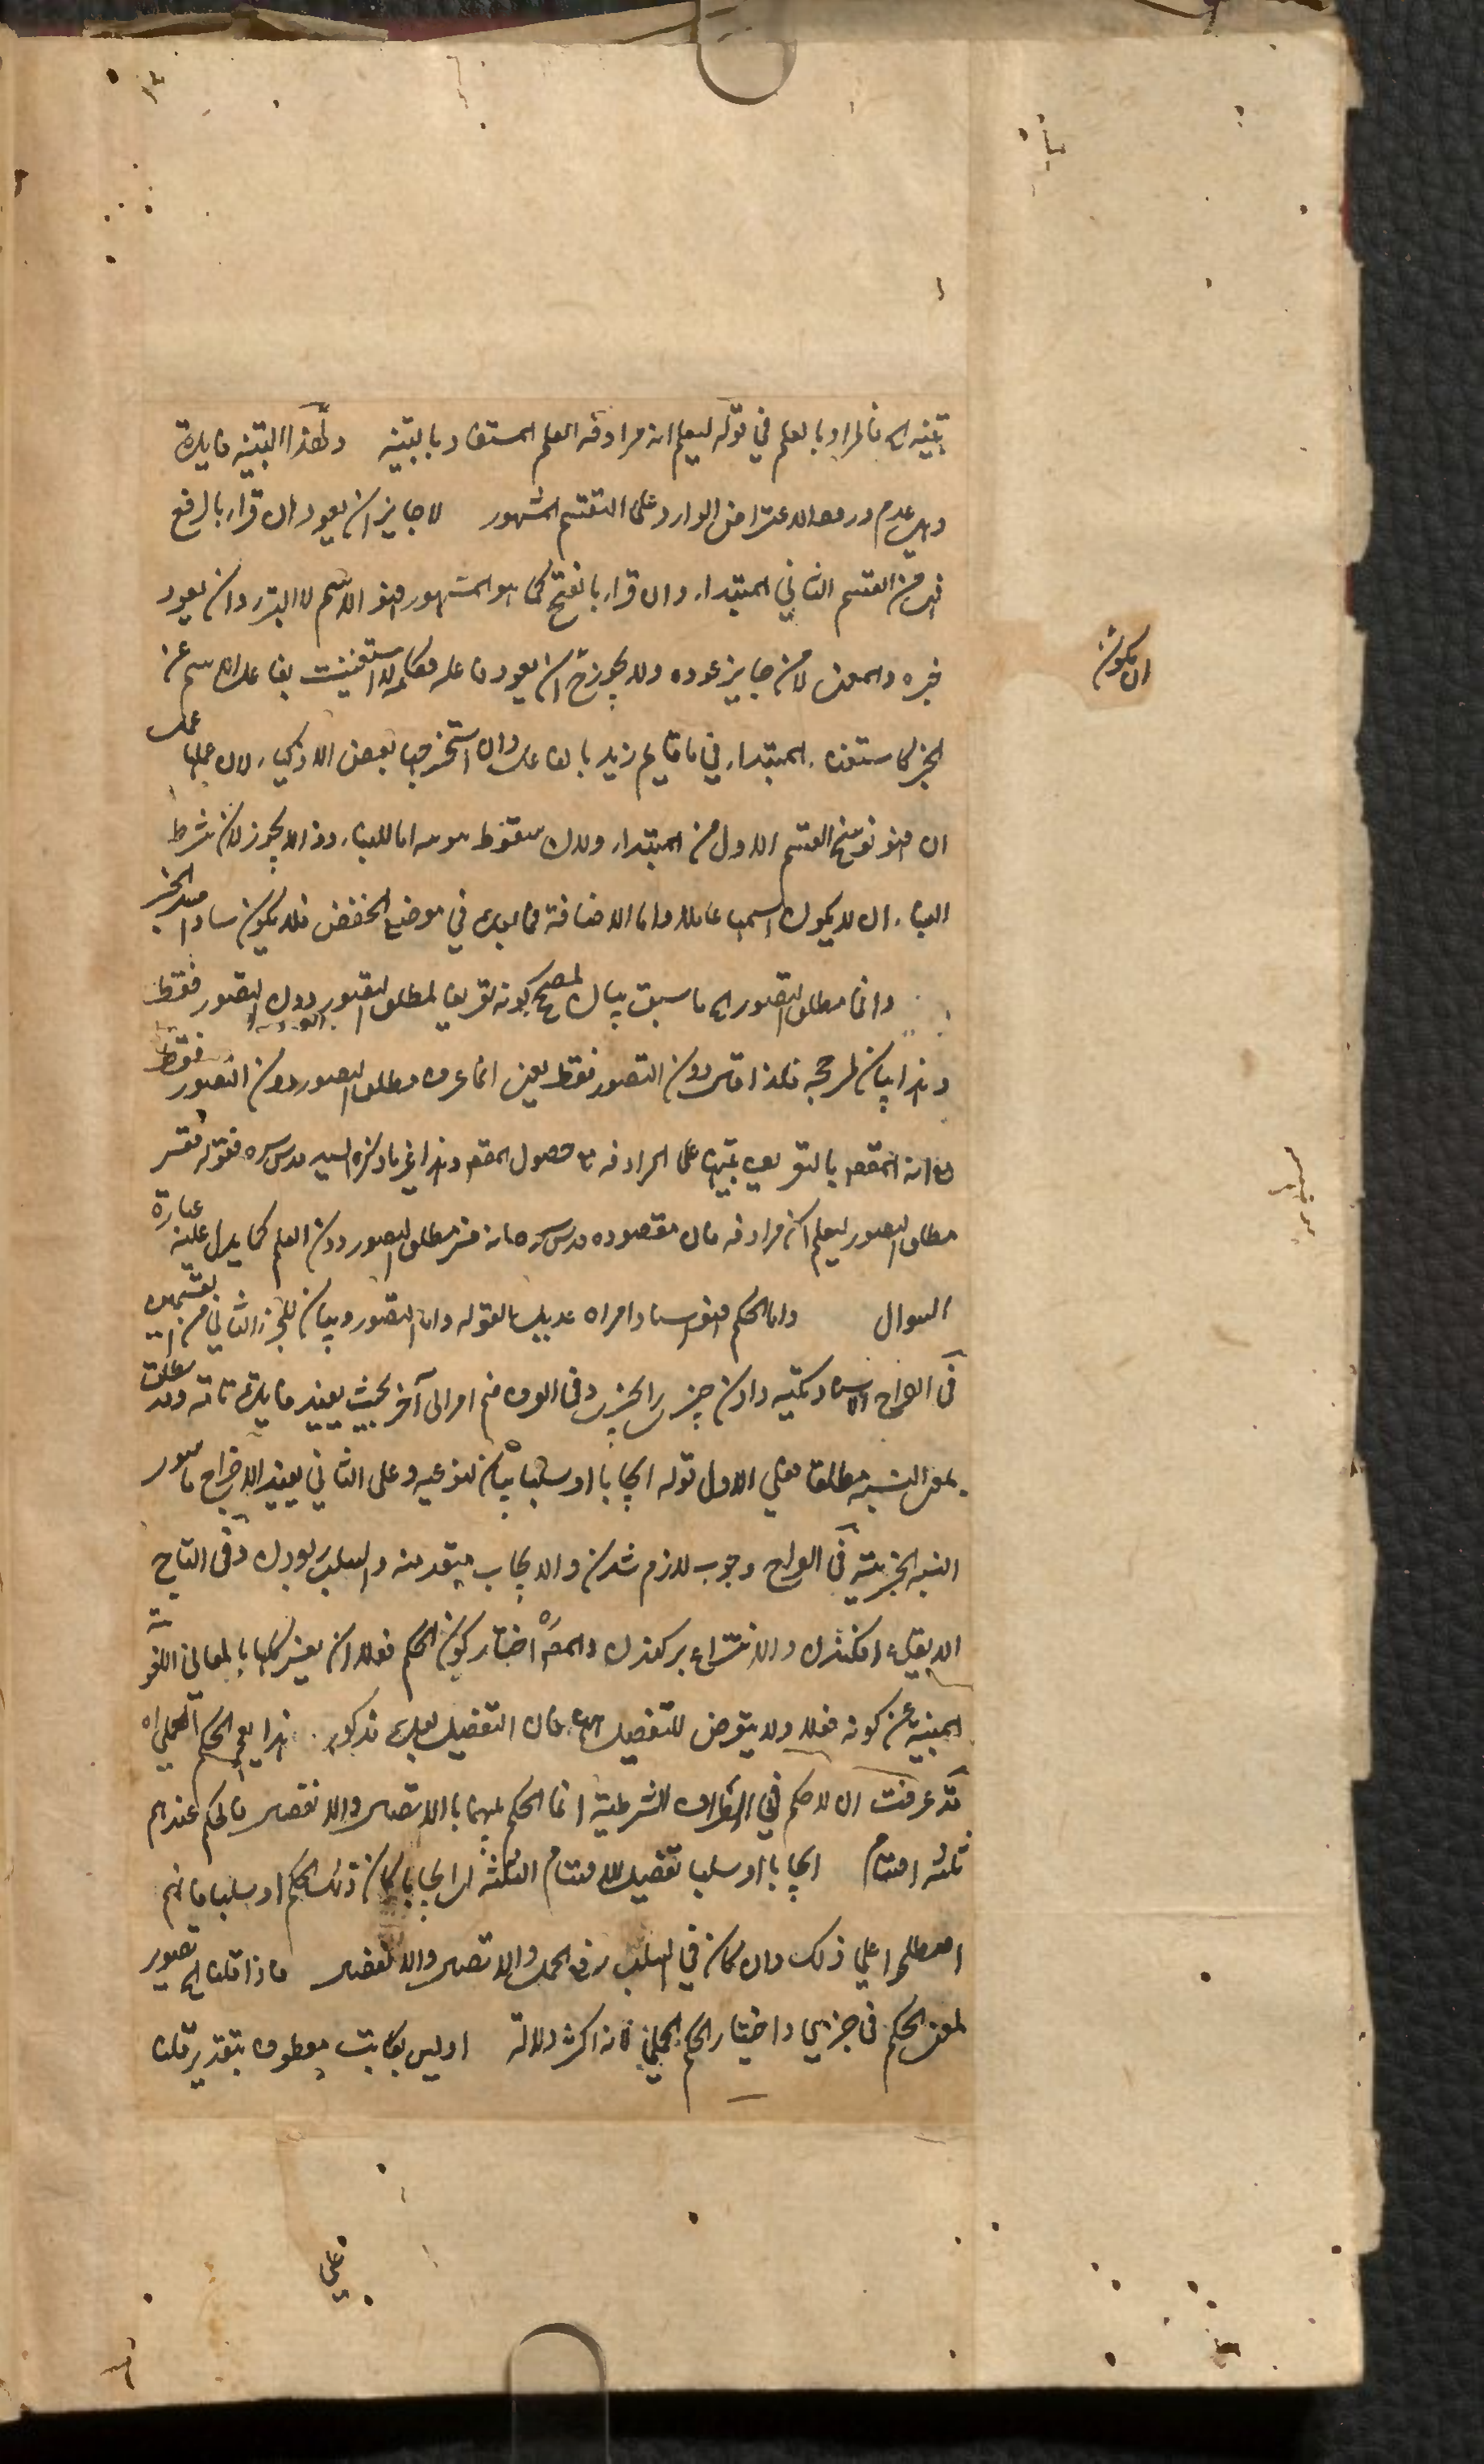 تنبيه الخ فالمراد بالعلم في قوله ليعلم انه مرادفه العلم المستفاد بالتنبيه ولهذا التنبيه فايدة
وهي عدم ورود الاعتراض الوارد على التقسيم المشهور لا جايز ان يعود ان قراء بالرفع
فهى من القسم الثاني المبتداء وان قراء بالفتح كما هو المشهور فهو اسم لا التبرئة وان يعود
خبره والمعنى لا من جايز عوده ولا يجوزح ان يعود فاعله استغنيت بفاعل الاسم عن
الخبر كما ستغناء المبتداء في ما قايم زيد بالفاعل وان استخرجها بعض الاذكياء لان عملها عمل
ان فهو نوسخ القسم الاول من المبتداء ولان سقوط تنوينه اما للبناء وذا لا يجوز لان شرط
البناء ان لا يكون اسمها عاملا واما الاضافة فما بعده في موضع الخفض فلا يكون سادا مسد الخبر
وانما مطلق التصور الخ ما سبق بيان لمصحح كونه تعريفا لمطلق التصور دون التصور فقط
وهذا بيان لمرجحه فلذا قال دون التصور فقط يعنى انما عرف مطلق التصور دون التصور فقط
مع انه المقصود بالتعريف تنبيها على المرادفه مع حصول المقصود وهذا غير ما ذكره السيد قدس سره فقوله فسر
مطلق التصور ليعلم ان مرادفه فان مقصوده قدس سره انه فسر مطلق التصور دون العلم كما يدل عليه عبارة
السوال واما الحكم فهو اسناد امر اه عديل لقوله واما التصور وبيان للجزء الثاني من التقسيم
في الصراح الاسناد تكيه دادن چيزى را بچيزى وفى العرف ضم امر الى آخر بحيث يفيد فايدة تامة وقد يطلق
بمعنى النسبة مطلقا فعلى الاول قوله ايجابا او سلبا بيان لنوعيه وعلى الثاني يفيد الاخراج ما سوى
النسبة الخبرية في الصراح وجوب لازم شدن والايجاب متعد منه والسلب ربودن وفى التاج
الايقاع افكندن والانتزاع بركندن والمصره اختار كون الحكم فعلا ان يفسر كلها بالمعاني اللغوية
المبنية عن كونه فعلا ولا يتعرض للتفصيل فان التفصيل بعده مذكور هذا يعم الحكم الحملى اه
قد عرفت ان لا حكم في اطراف الشرطية انما الحكم بينهما بالاتصال والانفصال فالحكم عندهم
ثلثه اقسام ايجابا او سلبا تفصيل للاقسام الثلثة اى ايجابا كان ذلك الحكم او سلبا فانهم
اصطلحوا على ذلك وان كان في السلب رفع الحمل والاتصال والانفصال فاذا قلنا الخ تصوير
لمعنى الحكم فى جزئى واختيار الحكم الحملى فانه اكثر دلالة او ليس بكاتب معطوف بتقدير قلنا
ان يكون
على